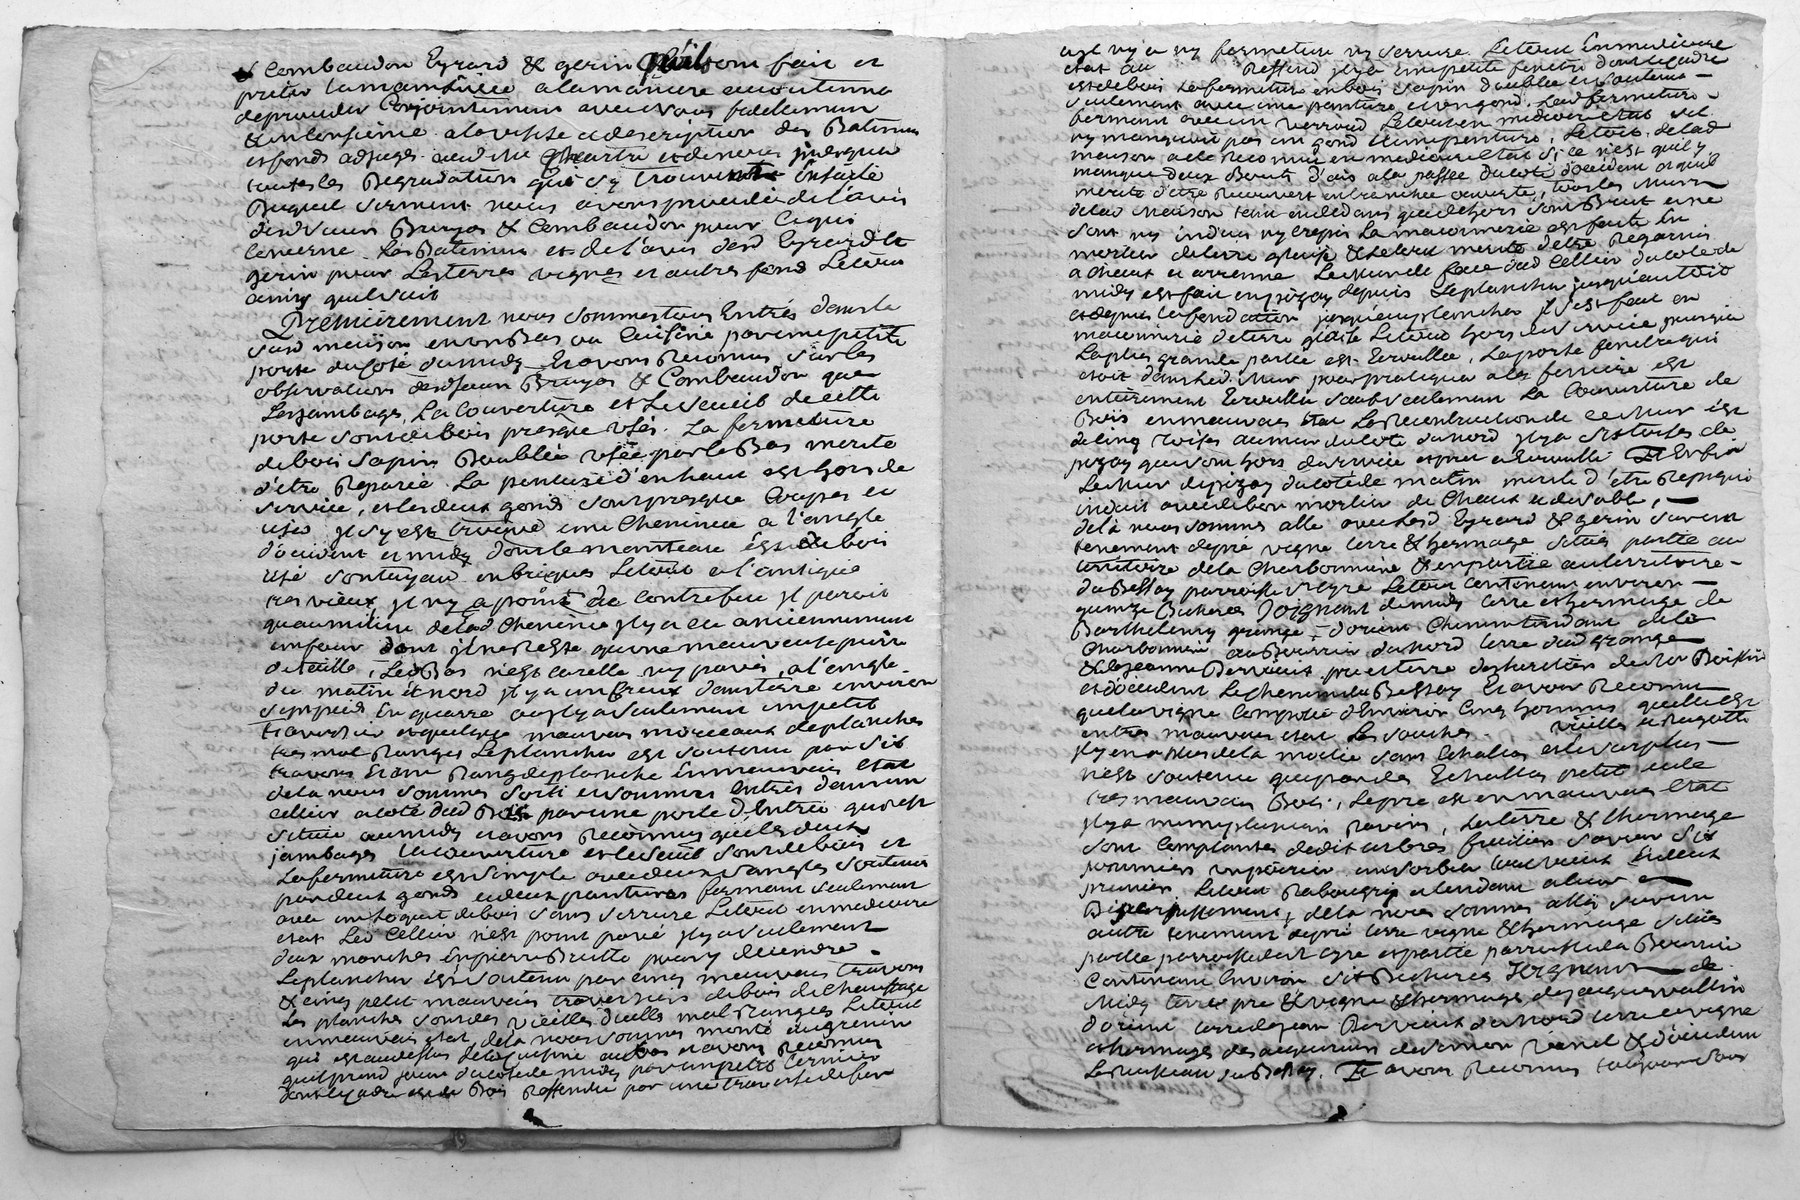 & Combaudon Eyrard & gerin qu'ils ont fait et
pretée la main levée a la maniere accoutumée
de proceder conjointement avec nous fidellement
& en conscience a la visite et description des Batimens
et fonds adjugés audit sieur Chartre et de nous indiquer
toutes les Degradations qui s'y trouveront Ensuite
Duquel serment nous avons procedé de l'avis
desd sieurs Bruyas & Combaudon pour ce qui
concerne les Batimens et de l'avis desd Eyrard &
gerin pour les terres vignes et autres fond Le tout
ainsy qu'il suit
Premierement nous sommes tous Entrés dans la
susd maison en un Bas ou Cuisine par une petite
porte du coté du midy Et avons Reconnu sur les
observations desd Jean Bruyas & Combaudon que
Les jambages, La Couverture et Le seueil de cette
porte sont de bois presque usés. La fermeture
de bois sapin Doublée usée par le Bas merite
d'etre Reparée La penture d'en haut est hors de
service, et les deux gonds sont presque Coupés et
usés Il s'y est trouvé une Cheminée a l'angle
d'occident et midy dont le manteau est de bois
usé son tuyau en briques Le tout a l'antique
tres vieux, Il n'y a point de Contrefeu Il paroit
qu'au milieu de lad Cheminée Il y a eu anciennement
un four dont Il ne Reste qu'une mauvaise pierre
de taille, Led Bas n'est carellé ny pavé, a l'angle
du matin et nord Il y a un Creux dans terre environ
six pieds En quarré ou Il y a seulement un petit
traversier et quelques mauvais morceaux de planches
tres mal Rangés Le plancher est soutenu par six
travons Et un Rang de planche En mauvais Etat
de la nous sommes sorti et sommes entrés dans un
cellier a coté dud Bas par une porte d'Entrée qui est
située au midy et avons Reconnu que les deux
jambages La couverture et le seuil sont de bois et
La fermeture est simple avec deux sangles soutenue
par deux gonds et deux pentures fermant seulement
avec un loquet de bois sans serrure Le tout en mediocre
etat Led Cellier n'est point pavé Il y a seulement
deux marches En pierre Brutte pour y descendre
Le plancher est soutenu par cinq mauvais travons
& cinq petit mauvais traversiers de bois de chauffage
Les planches sont des vieilles douelles mal Rangées Le tout
en mauvais etat, de la nous sommes monté au grenier
qui est au dessus de la Cuisine ou bas et avons Reconnu
qu'il prend jour du coté de midy par un petit Larmier
dont le cadre est de Bois Reffendu par une traverse de fer
ou Il n'y a ny fermeture ny serrure. Le tout En mediocre
etat au Reffend Il y a une petite fenetre dont le cadre
est de bois La fermeture en bois sapin doublée et soutenue
seulement avec une penture et un gond. Lad fermeture
fermant avec un verroud Le tout en mediocre etat
ny manquant pas un gond et une penture, Le toit de lad
maison a eté Reconnu en mediocre Etat si ce n'est qu'il y
manque deux Bouts d'ais a la passée du coté d'occident et qu'il
merite d'etre Recouvert en tranchée ouverte, tous les Murs
de lad Maison tant en dedans que dehors sont Brut et ne
sont ny induis ny crepis La maconnerie est faite En
mortier de terre glaise & Le tout merite d'etre Regarnis
a Cheaux et arenne Le Mur de face dud Cellier du coté de
midy est fait en pizay depuis Le plancher jusques au toit
et depuis la fondation jusques au plancher Il est fait en
maconnerie de terre glaise Le tout hors de service puisque
La plus grande partie est Ecroullée, La porte fenetre qui
etoit dans led. Mur pour pratiquer a la feniere est
entierement Ecroullée sauf seulement La Couverture de
Bois en mauvais etat La Reconstruction de ce Mur est
de cinq toises au mur du coté du nord Il y a six toises de
pizay qui sont hors de service et prest a Ecrouller Et Enfin
Le Mur de pizay du coté de matin merite d'etre Repiqué
induit avec de bon mortier de Cheaux et de sable,
de la nous sommes allé avec lesd Eyrard & gerin sur un
tenement de pré vigne terre & hermage situés partie au
territoire de la Charbonniere & en partie au territoire
du Bessay parroisse St Cyre Le tout Contenant environ
quinze Bicherées Joignant de midy terre et hermage de
Barthelemy grange, d'orient Chemin tendant de la
Charbonniere au Bourrier du nord terre dud grange
& de Jeanne Dervieux, pré et terre des heritiers de
et d'occident Le chemin du Bessay Et avons Reconnu
que la vigne Composée d'Environ Cinq hommées qu'elle est
en tres mauvais etat Les souches vieilles et Rugottes
Il y en a plus de la moitié sans Echallas et le surplus
n'est soutenue que par des Echallas petit et de
tres mauvais Bois, Le pré est en mauvais Etat
Il y a meme plusieurs Ravins, La terre & l'hermage
sont Complantés de dix arbres fruitiers savoir six
pommiers un poirier un sorbier
pruniers Le tout Rabougris et tendant a leur
Deperissement, de la nous sommes allés sur un
autre tenement de pré terre vigne & hermage situés
partie parroisse de St Cyre et partie parroisse de la
Contenant Environ six Bicherées Joignant de
Midy terre pré & vigne & hermage de Jacques vallin
d'orient terre de Jean Dervieux du Nord terre et vigne
et hermage des acquereurs de Simon & d'occident
Le Ruisseau du Bessay. Et avons Reconnu toujours sous